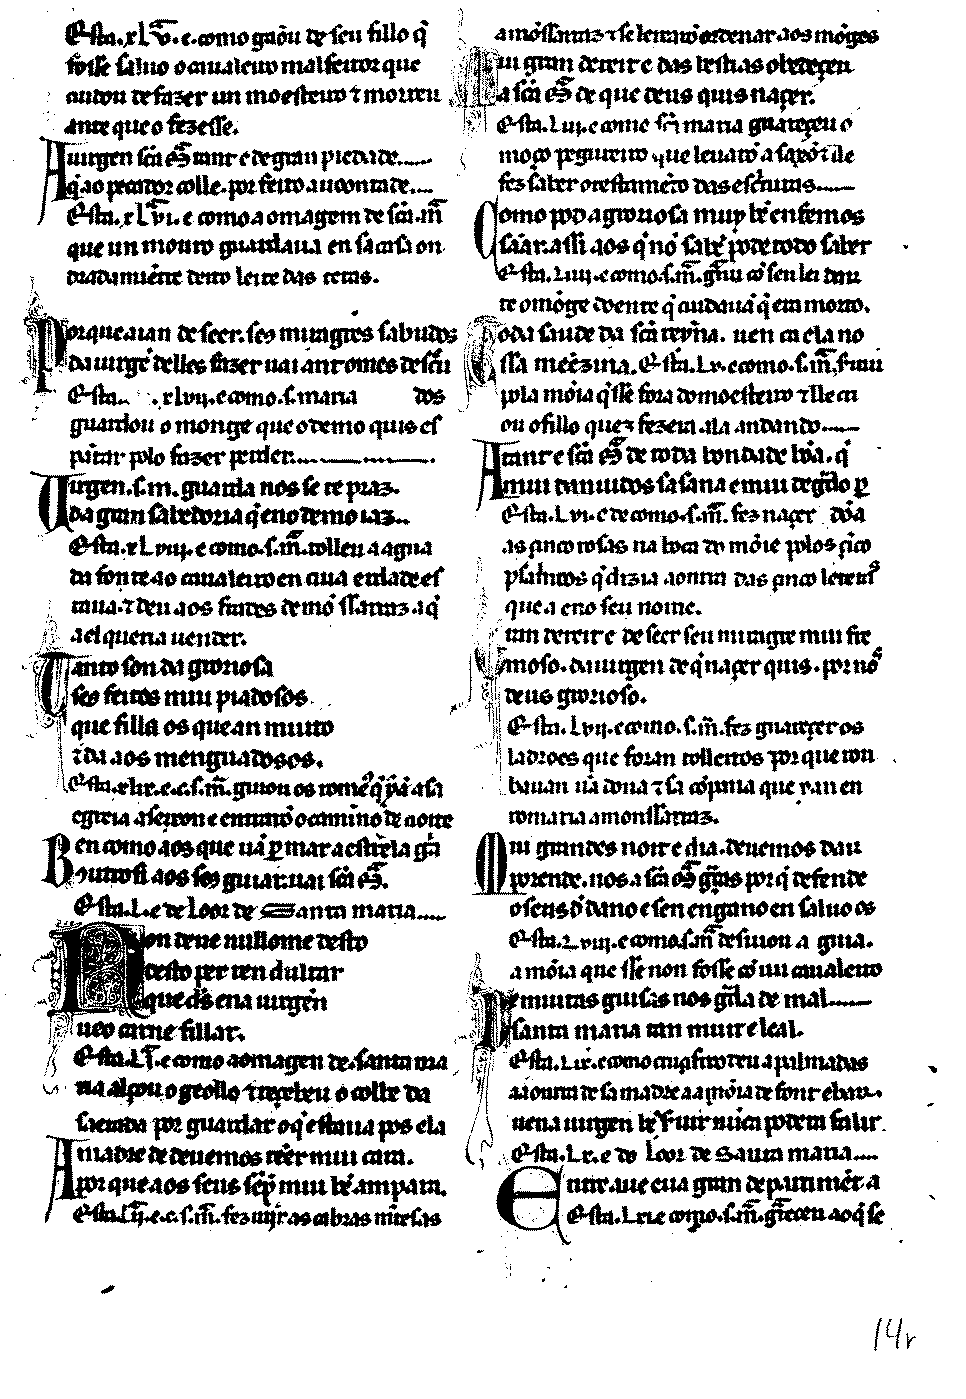 Esta .xLv. e. como gãou de seu fillo q̇
fosse saluo o caualeiro malfeitor que
cuidou de fazer un moesteiro ⁊ morreu
ante que o fezesse.
A uirgen sc̃a M̃ tant e de gran piedade
q̇ ao pecador colle. por feito a uoontade
Esta .xLvi. e como a omagem de sc̃a. m̃
que un mouro guardaua en sa casa on
rradamẽte deito leite das tetas.
Porque aian de seer. ses miragres sabudos
da uirgẽ delles fazer uai ant omes descreu
Esta .xLvij. e como. s. maria dos
guardou o monge que o demo quis es
pãtar polo fazer perder.
Uirgen. s. m. guarda nos se te praz.
da gran sabedoria q̇ eno demo iaz.
Esta .xLviij. e como. s. m̃. tolleu a agua
da fonte ao caualeiro en cuia erdade es
taua. ⁊ deu aos frades de mõssarraz a q̇
a el queria uender.
Tanto son da groriosa
ses feitos mui piadosos
que fill a os que an muito
⁊ da aos menguadosos.
Esta .xLix. e. c. s. m̃. guiou os romeus q̇ yã a sa
egreia a seixon e entrarõ o camino de noite
Ben com aos que uã per mar a estrela guia
outrossi aos ses guiar. uai sc̃a M̃.
Esta .L. e de loor de Santa maria
Non deue null ome desto
desto per ren dultar
que ds̃ ena uirgen
ueo carne fillar.
Esta .Lj. e como a omagen de. santa ma
ria alçou o geollo ⁊ recebeu o colbe da
saeta por guardar o q̇ estaua pos ela
A madre de deuemos tẽer mui cara.
porque aos seus sẽpr̃ mui bẽ ampara.
Esta .Lij. e. c. s. m̃. fez uĩjr as cabras mõtesas
a mõssarraz ⁊ se leixauã ordenar aos mõges
Mui gran dereit e das bestias obedeçen
a sc̃a M̃ de que deus quis naçer.
Esta .Liij. e como sc̃a maria guareçeu o
moço pegureiro que leuarõ a saxõ ⁊ lle
fez saber o testamẽto das escrituras
Como pod a groriosa mui bẽ enfermos
sãar. assi aos q̇ nõ sabẽ pode todo saber
Esta .Liiij. e como. s. m̃. guariu cõ seu lei dau
te o mõge doente q̇ cuidauã q̇ era morto.
Toda saude da sc̃a reyn̾a. uen ca ela no
ssa meezina. Esta .Lv. e como. s. m̃. seruiu
pola mõia q̇ sse fora do moesteiro ⁊ lle cri
ou o fillo que fezera ala andando
Atant e sc̃a M̃ de toda bondade bõa. q̇
mui d anuidos sa sana e mui de grado per
Esta .Lvi. e de como. s. m̃. fez naçer
as çinco rosas na boca do mõie polos çĩco
psalmos q̇ dizia a onrra das çinco leteras
que a eno seu nome.
Gran dereit e de seer seu miragre mui fre
moso. da uirgen de q̇ naçer quis. por nos
deus grorioso.
Esta .Lvij. e como. s. m̃. fez guareçer os
ladrões que foran tolleitos porque rou
bauan ũa dona ⁊ sa cõpana que yan en
romaria a monssarraz.
Mui grandes noit e dia. deuemos dar
porende. nos a sc̃a M̃ graças por q̇ defende
os seus d dano e sen engano en saluo os
Esta .Lviij. e como. s. m̃ desuiou a guia.
a mõia que sse non fosse cõ un caualeiro
De muitas guisas nos guarda de mal
santa maria tan muit e leal.
Esta .Lix. e como cruçifixo deu a palmadas
a a onrra de sa madre a a mõia de font ebrar
uena uirgen bẽ seruir nũca podera falir.
Esta .Lx. e do loor de Santa maria
Entre aue eua gran departiment a
Esta .Lxi. e como. s. m̃. guareceu ao q̇ se
14r